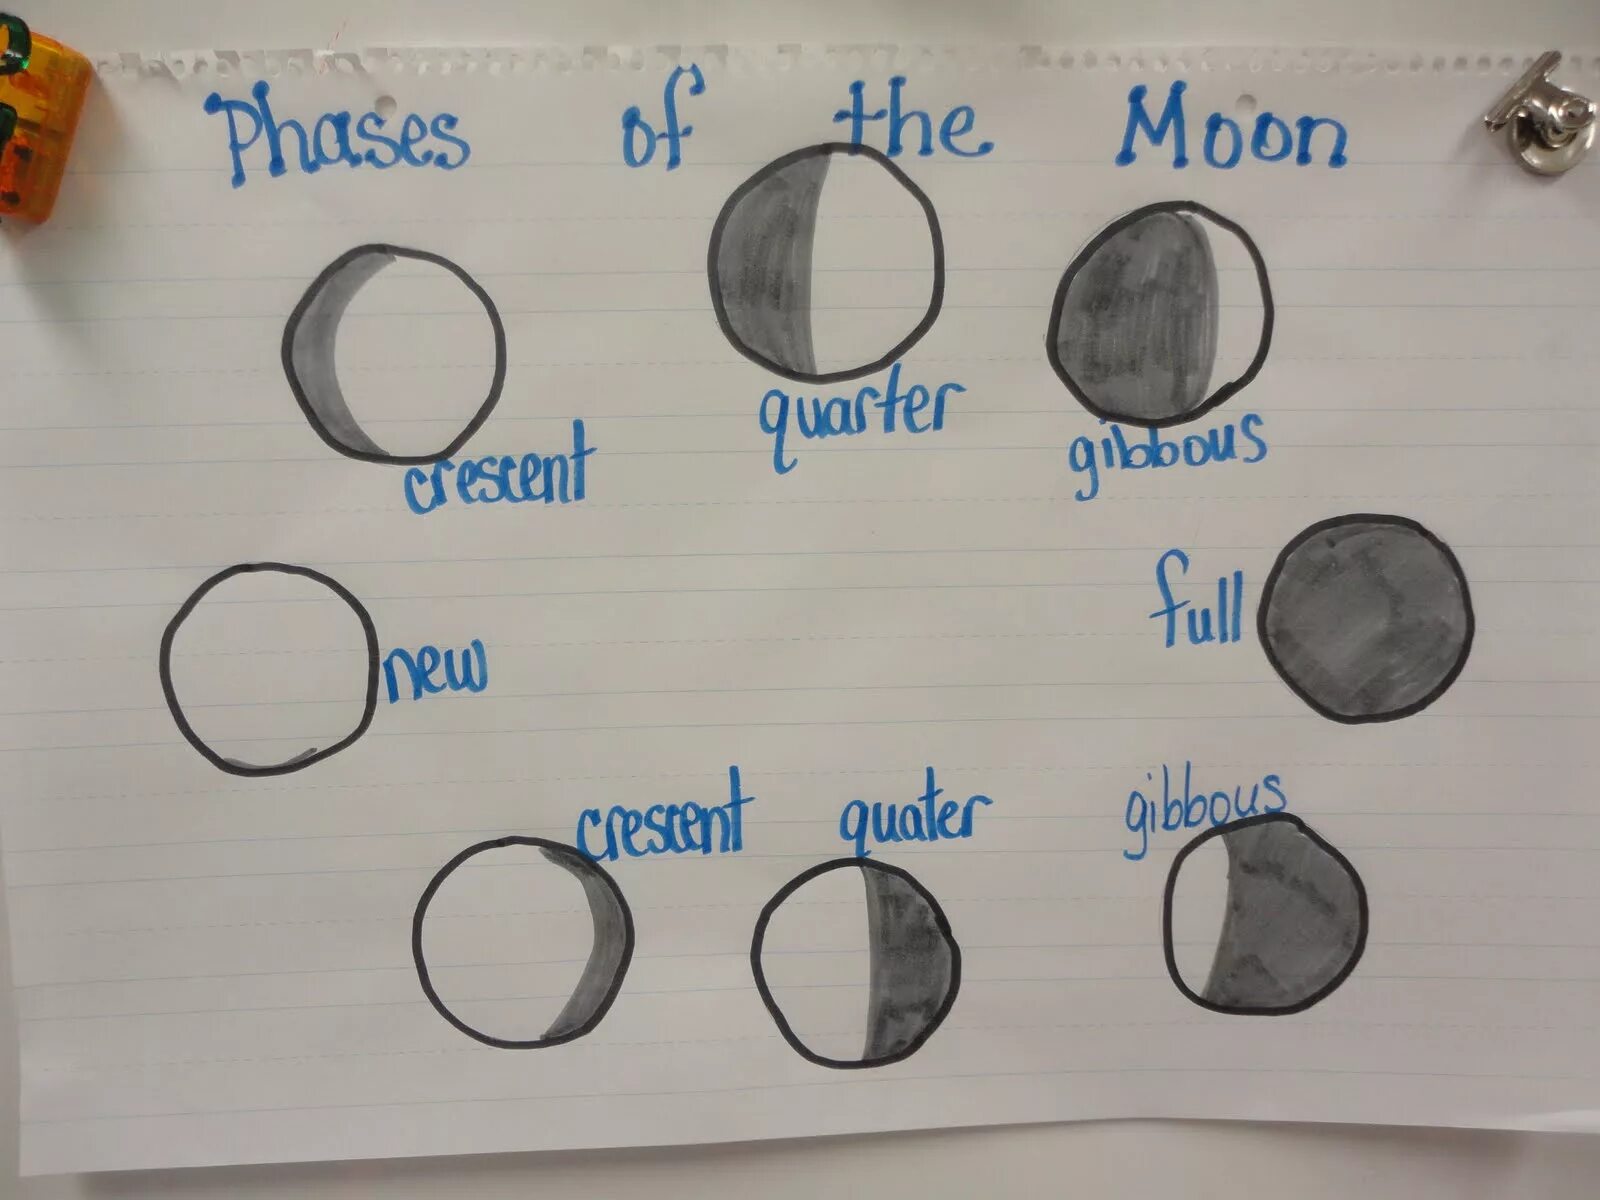 Phases of the Moon
quarter
gibbous
crescent
full
new
crescent
quater
gibbous